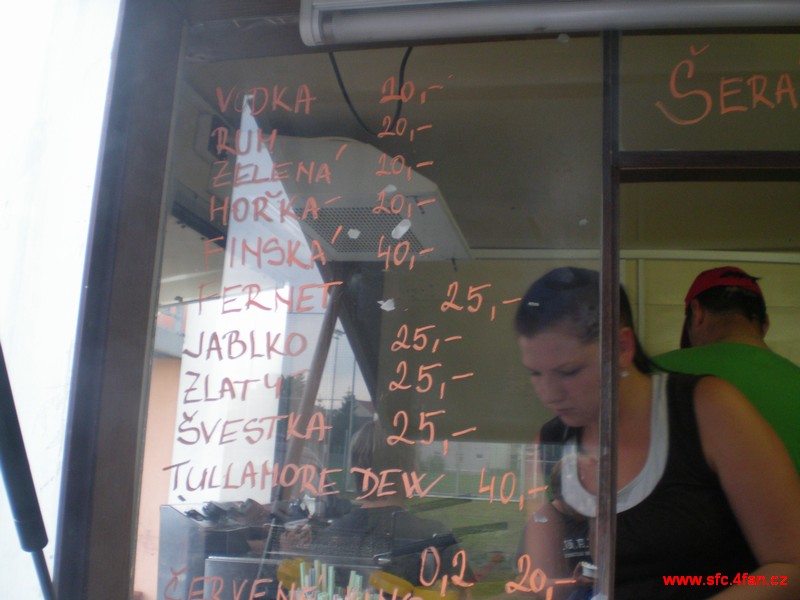 VODKA 20,-
RUM 20,-
ZELENÁ 20,-
HOŘKÁ 20,-
FINSKÁ 40,-
FERNET 25,-
JABLKO 25,-
ZLATÝ 25,-
ŠVESTKA 25,-
TULLAMORE DEW 40,-
ČERVENÉ 0,2 20,-
ŠERA
www.sfc.4fan.cz